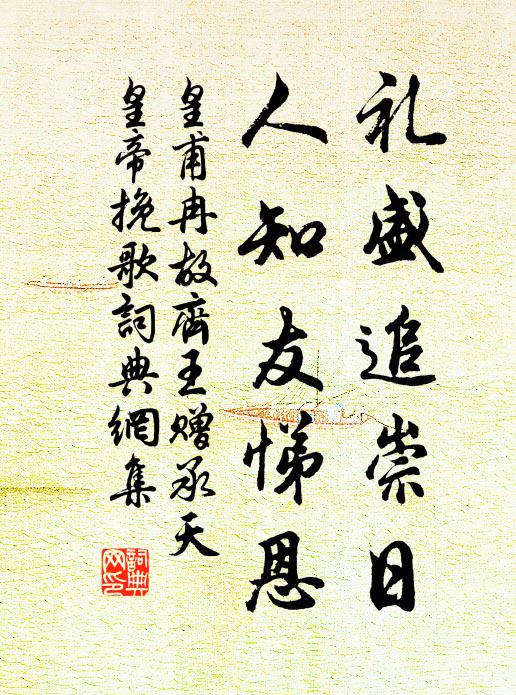 礼盛追崇日
人知友悌恩
皇甫冉故齊王赠承天
皇帝挽歌詞典網集
詞典
网印